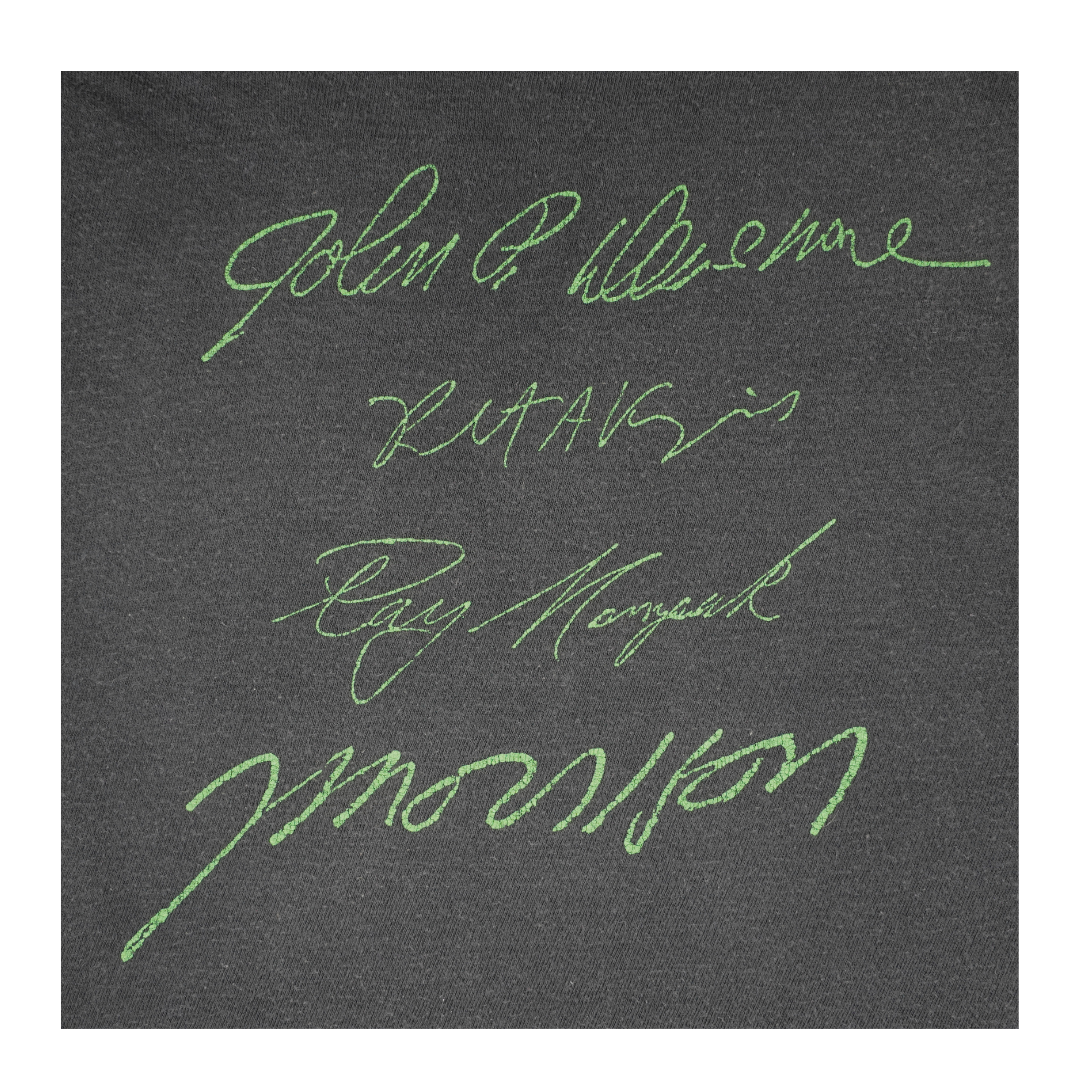 John P. Densmore
A Krieger
Ray Manzarek
JMorrison